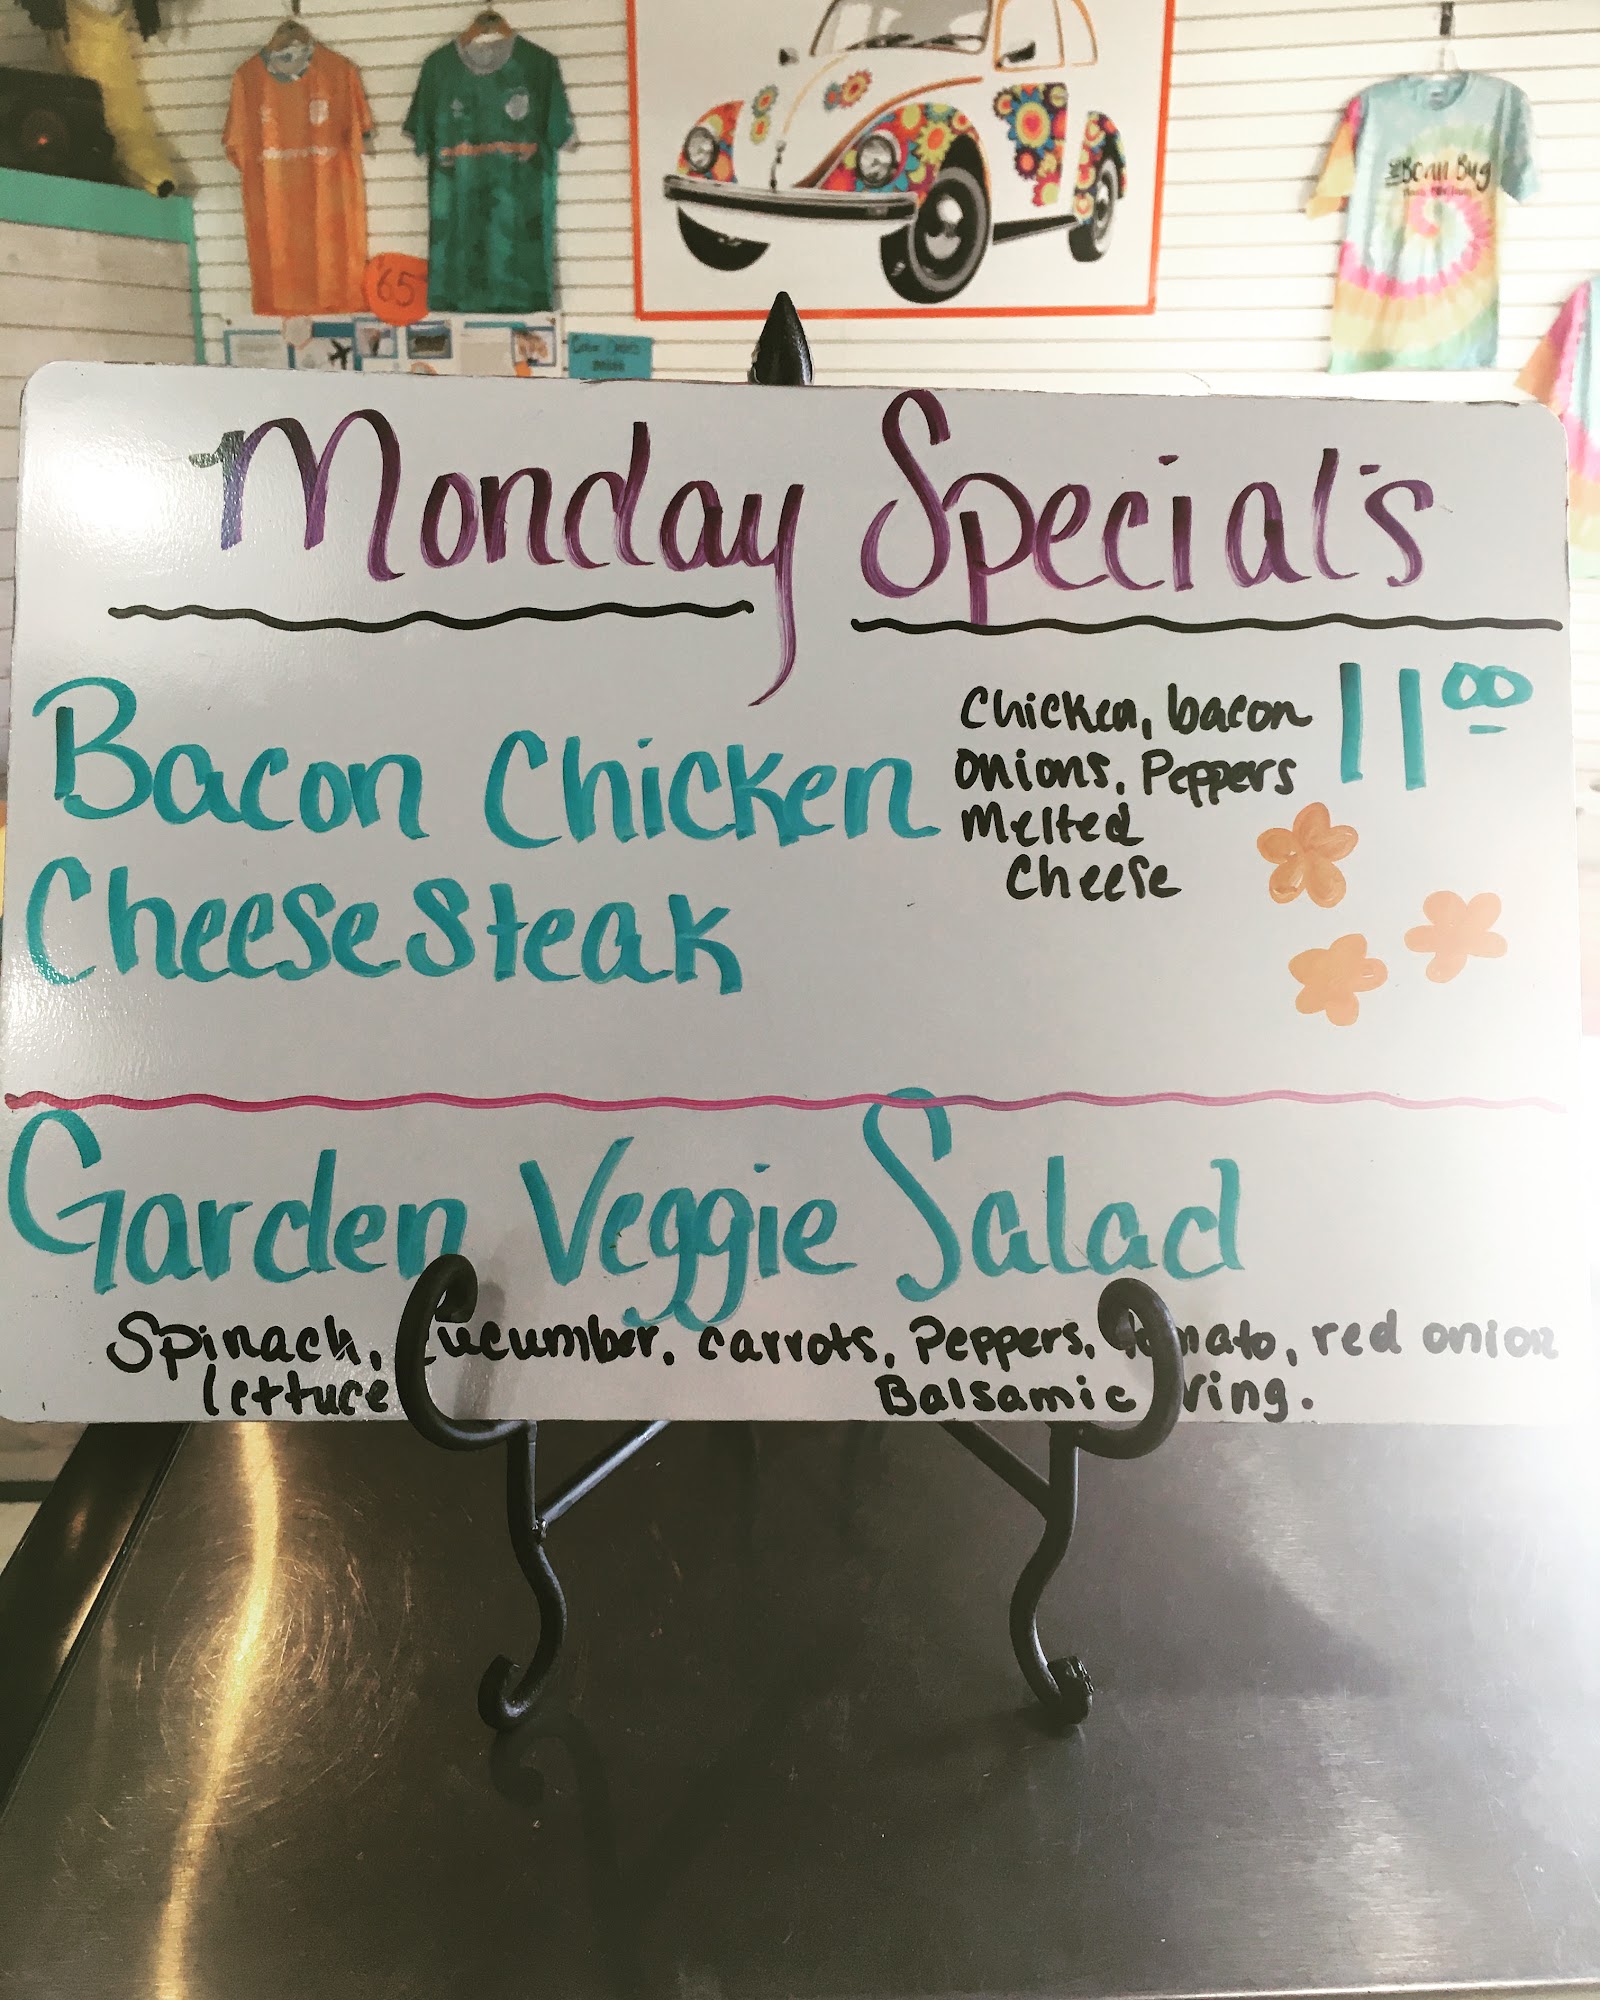 65
The Bean Bug
Monday Special's
Bacon Chicken
Cheesesteak
Chicken, bacon
onions, Peppers
Melted
Cheese
11 00
Garden Veggie Salad
Spinach, cucumber, carrots, Peppers, tomato, red onion
lettuce Balsamic